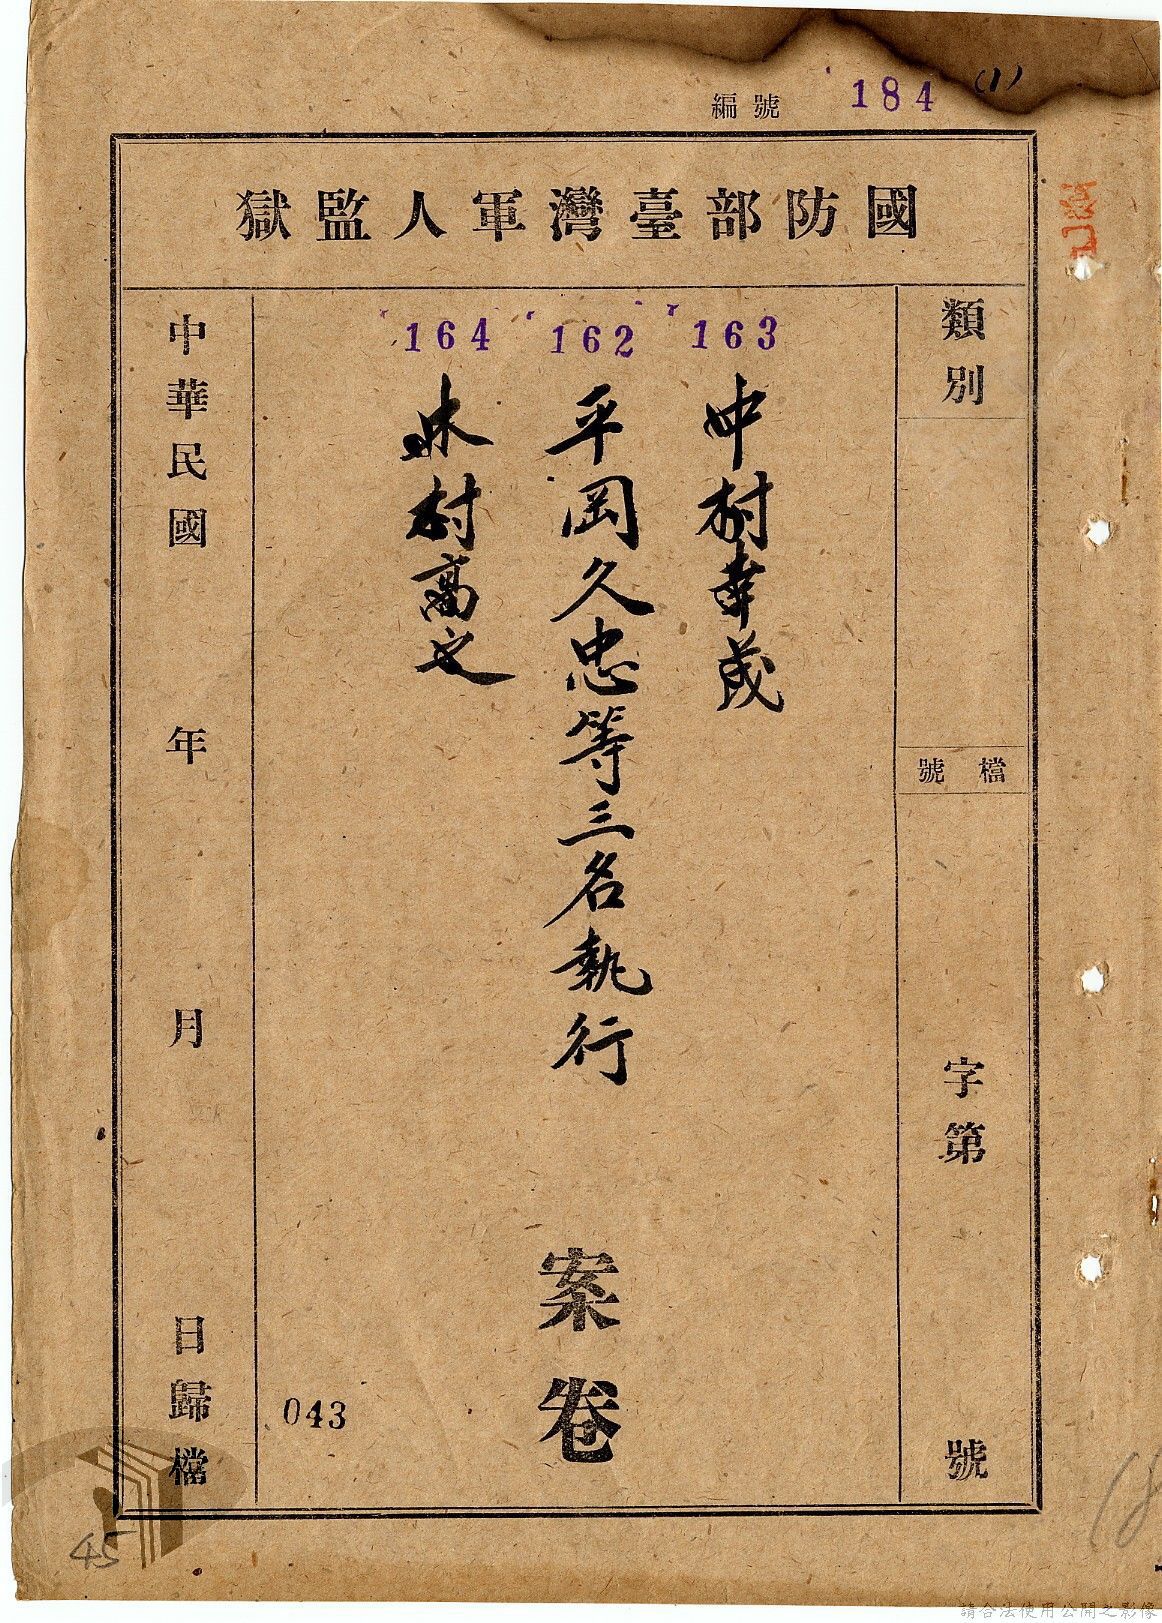 編號 184 (1)
國防部臺灣軍人監獄
類別
檔號
字第 號
163
中村幸茂
162
平岡久忠等三名執行
案卷
164
木村高文
中華民國 年 月 日歸檔
043
45
請合法使用公開之影像